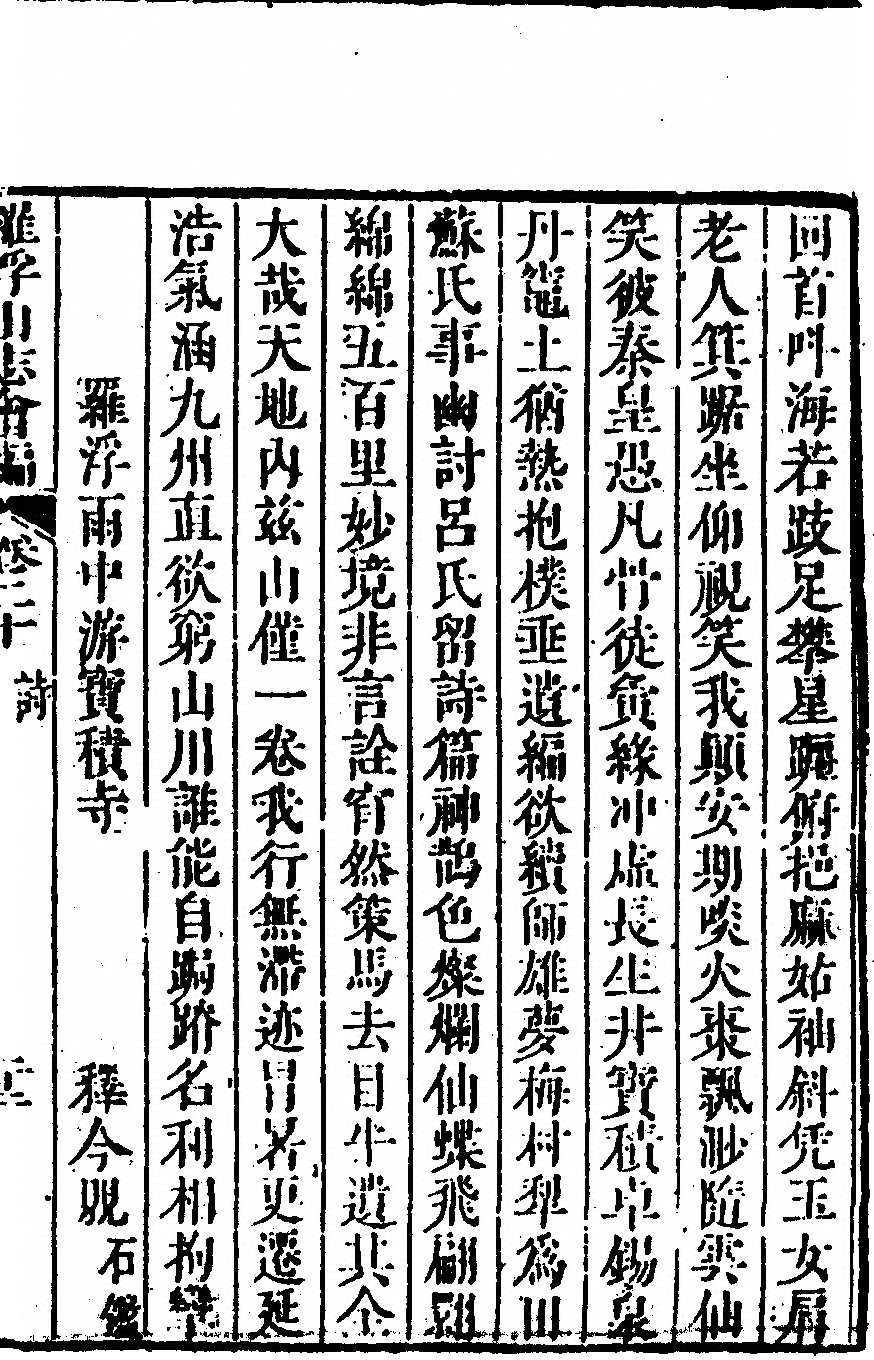 回首呌海若跂足攀星躔俯挹麻姑袖斜凭玉女肩
老人箕踞坐仰視笑我顛安期啖火棗飄渺隨雲仙
笑彼秦皇愚凡骨徒夤緣冲虛長生井寶積卓錫泉
丹竈土猶熱抱樸垂遺編欲續師雄夢梅村犁爲田
蘇氏事幽討呂氏留詩篇神鵲色燦爛仙蝶飛翩翾
綿綿五百里妙境非言詮窅然策馬去目半遺其全
大哉天地內茲山僅一卷我行無滯迹冒暑更遷延
浩氣涵九州直欲窮山川誰能自跼蹐名利相拘攣
羅浮雨中游寶積寺 釋今覞 石鑑
羅浮山志會編 卷二十 詩